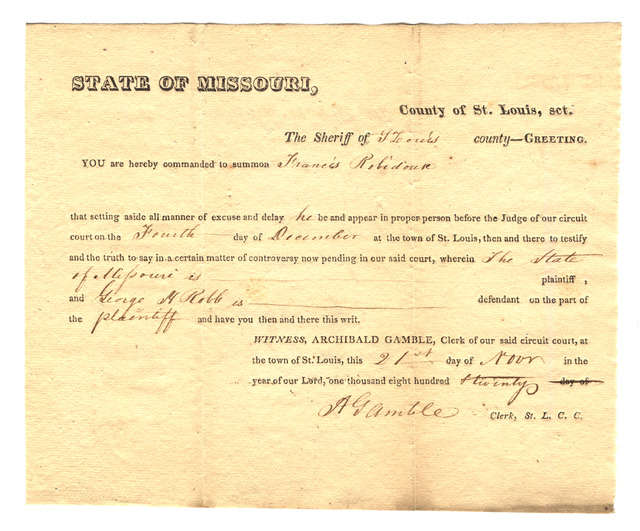 STATE OF MISSOURI,
County of St. Louis, sct.
The Sheriff of St Louis county—GREETING.
YOU are hereby commanded to summon Francis Robidoux
that setting aside all manner of excuse and delay he be and appear in proper person before the Judge of our circuit
court on the Fourth day of December at the town of St. Louis, then and there to testify
and the truth to say in a certain matter of controversy now pending in our said court, wherein The State
of Missouri is plaintiff,
and George H Robb is defendant on the part of
the plaintiff and have you then and there this writ.
WITNESS, ARCHIBALD GAMBLE, Clerk of our said circuit court, at
the town of St. Louis, this 21st day of Novr in the
year of our Lord, one thousand eight hundred & twenty day of
A Gamble Clerk, St. L. C. C.